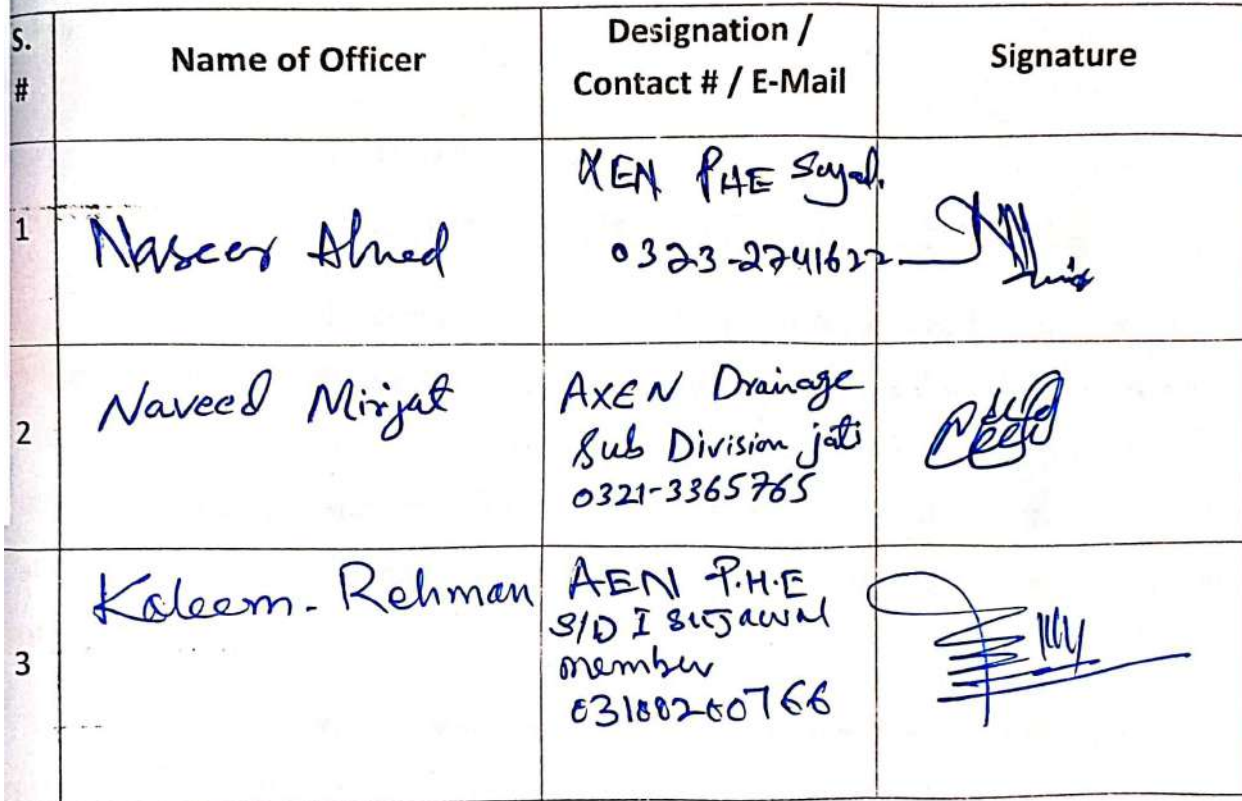 S. #
Name of Officer
Designation /
Contact # / E-Mail
Signature
1
Naseer Ahmed
XEN PHE
0323-2741622
2
Naveed Mirjat
AXEN Drainage
Sub Division jati
0321-3365765
3
Kaleem. Rehman
AEN P.H.E
S/D I Sujawal
member